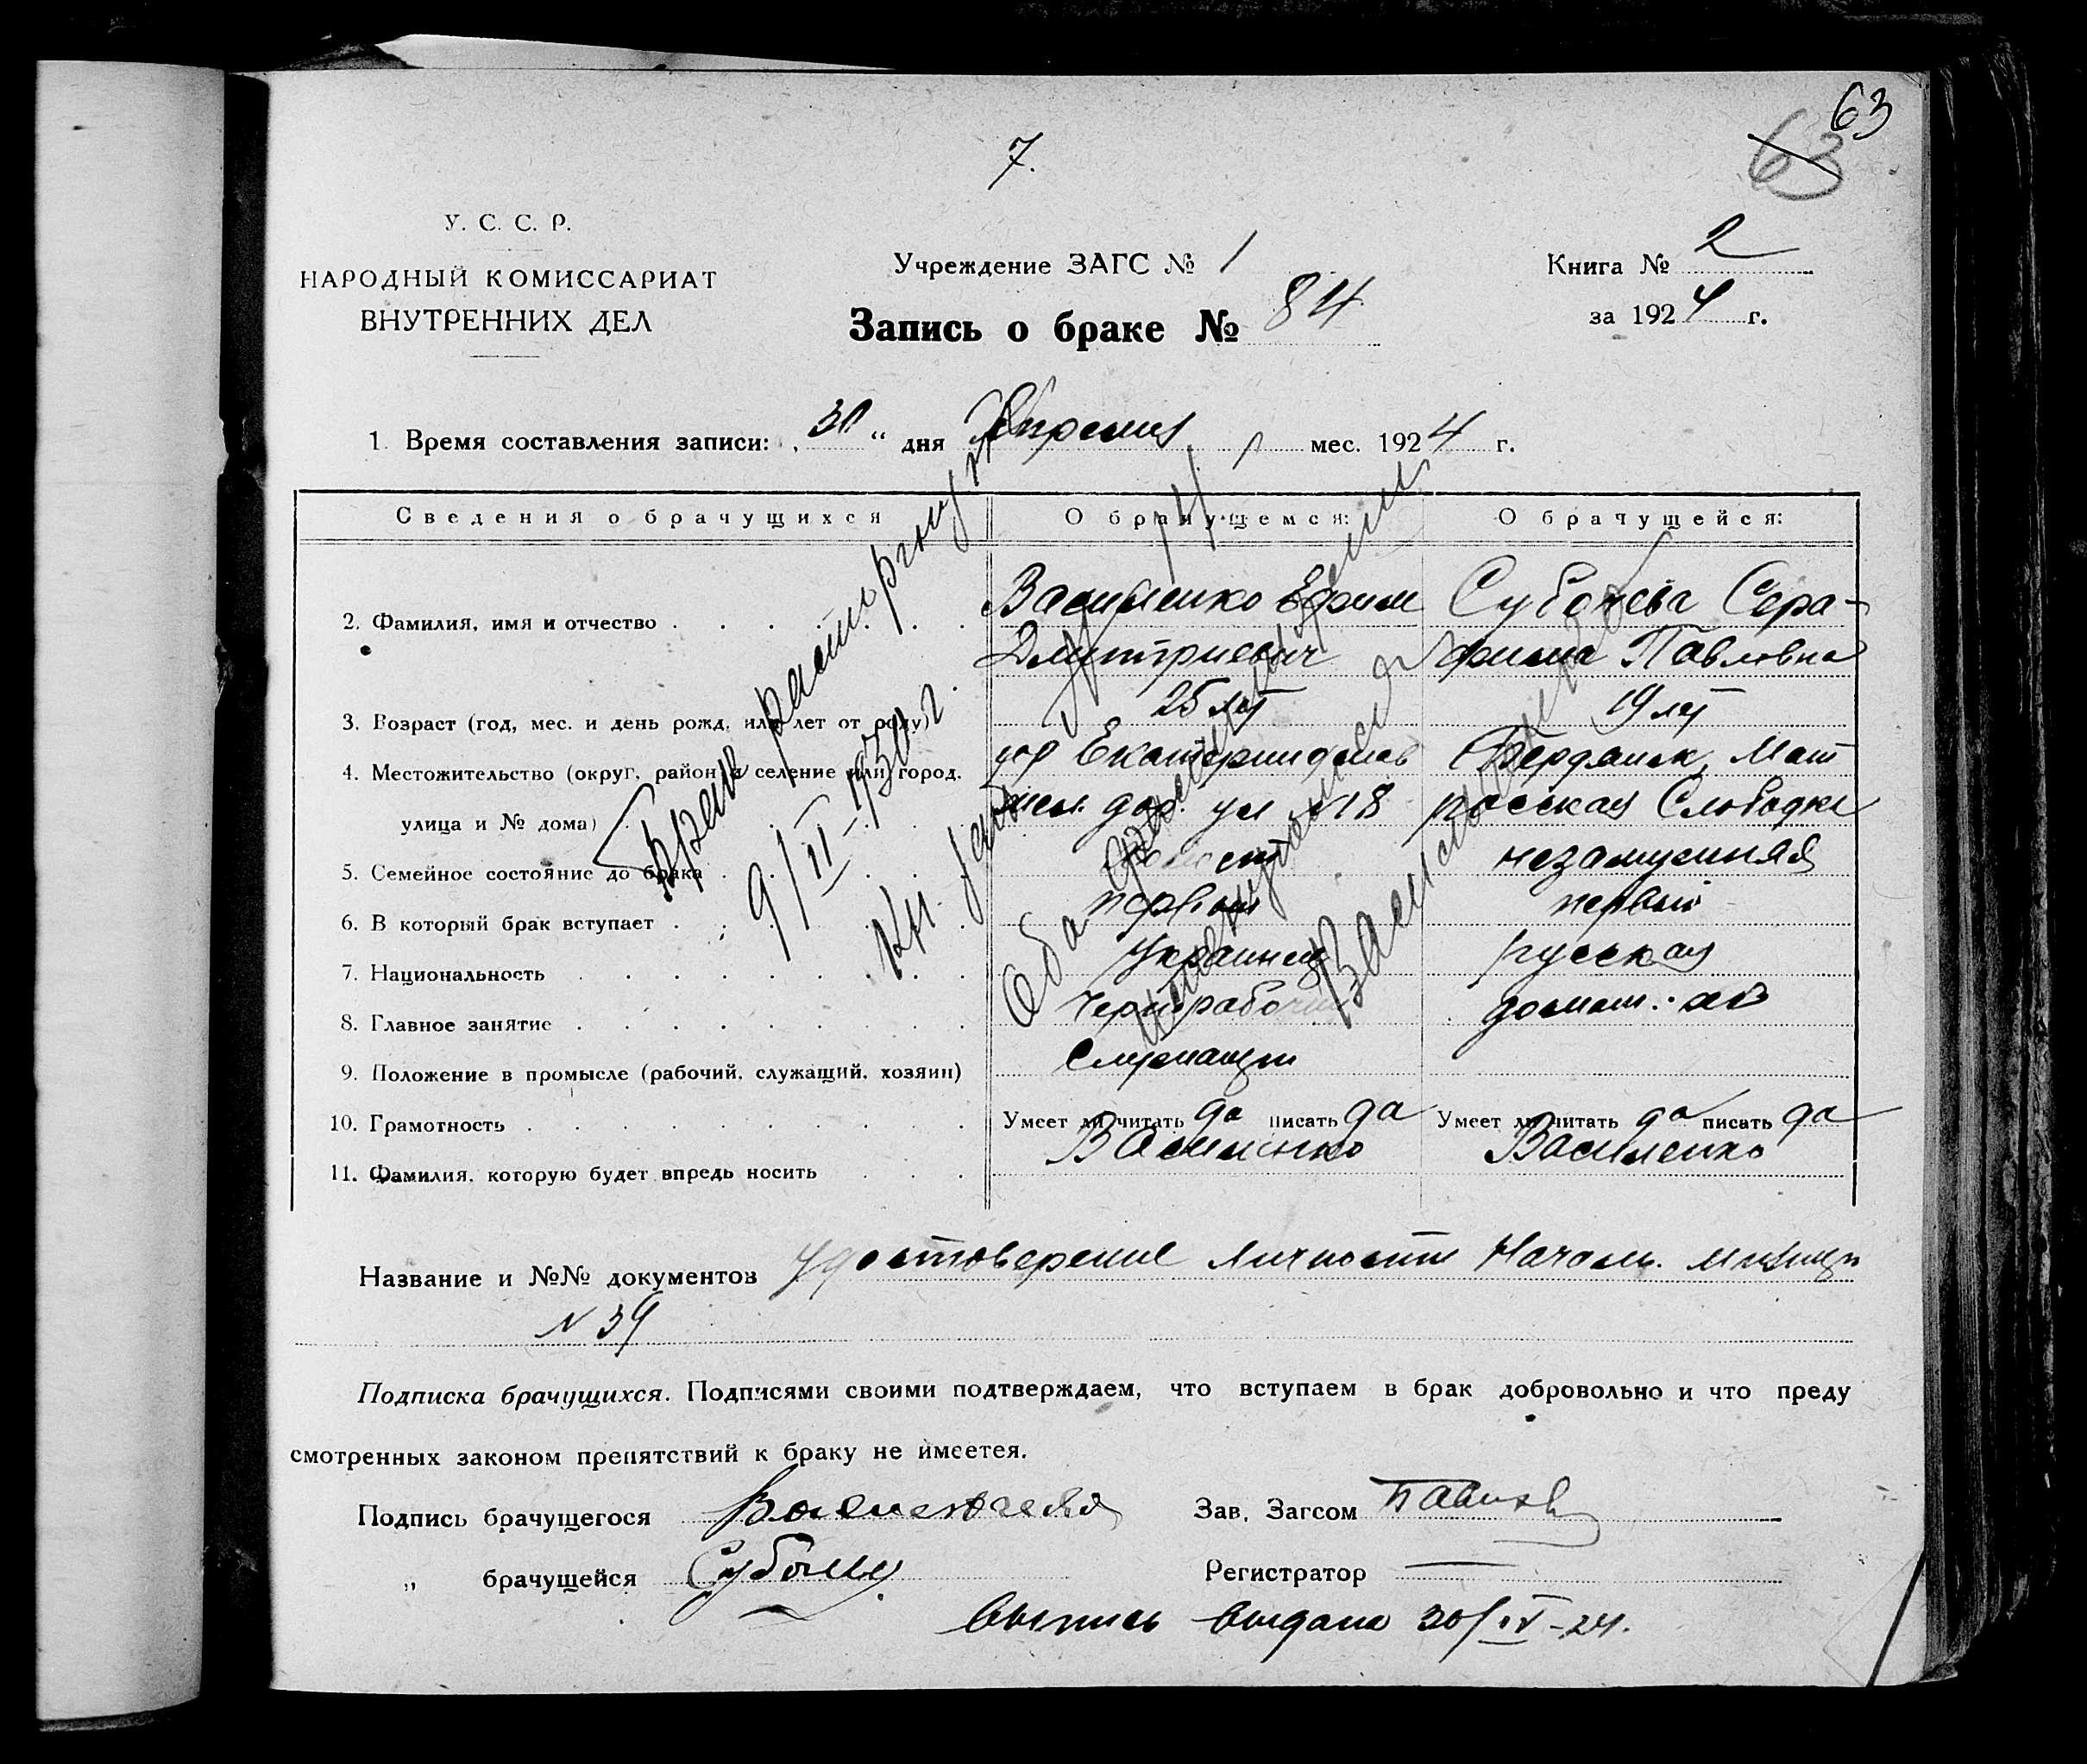 63
63
7.
У. С. С. Р.
НАРОДНЫЙ КОМИССАРИАТ
ВНУТРЕННИХ ДЕЛ
Учреждение ЗАГС № 1
Запись о браке № 84
Книга № 2
за 1924 г.
1. Время составления записи: „30“ дня Апреля мес. 1924 г.
Сведения о брачущихся
О брачущемся:
О брачущейся:
2. Фамилия, имя и отчество
Василенко Ефим
Дмитриевич
Субочева Сера-
фима Павловна
3. Возраст (год, мес. и день рожд. или лет от роду)
25 лет
19 лет
4. Местожительство (округ, район и селение или город,
улица и № дома)
гор Екатеринослав
ул №18
Бердянск, Мат
росская Слободка
5. Семейное состояние до брака
холост
незамужняя
6. В который брак вступает
первый
первый
7. Национальность
Украинец
русская
8. Главное занятие
Чернорабочий
домаш.
9. Положение в промысле (рабочий, служащий, хозяин)
Служащий
10. Грамотность
Умеет ли читать да писать да
Умеет ли читать да писать да
11. Фамилия, которую будет впредь носить
Василенко
Василенко
Брак расторгнут
9/II-1930 г.
Оба
Название и №№ документов Удостоверение личности Начальн. милиции
№ 39
Подписка брачущихся. Подписями своими подтверждаем, что вступаем в брак добровольно и что преду
смотренных законом препятствий к браку не имеется.
Подпись брачущегося
Зав. Загсом
„ брачущейся
Регистратор
Выпись выдана 30/IV-24.